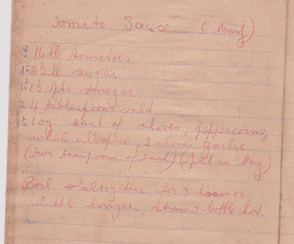 Tomato Sauce (Mary)
16 lb tomatoes
2½ lb sugar
1½ pts vinegar
4 tablespoons salt
1 oz each of cloves, peppercorns,
whole allspice, 2 cloves garlic
(two teaspoons of each) (put in bag)
Boil altogether for 3 hours or
little longer, strain & bottle hot.